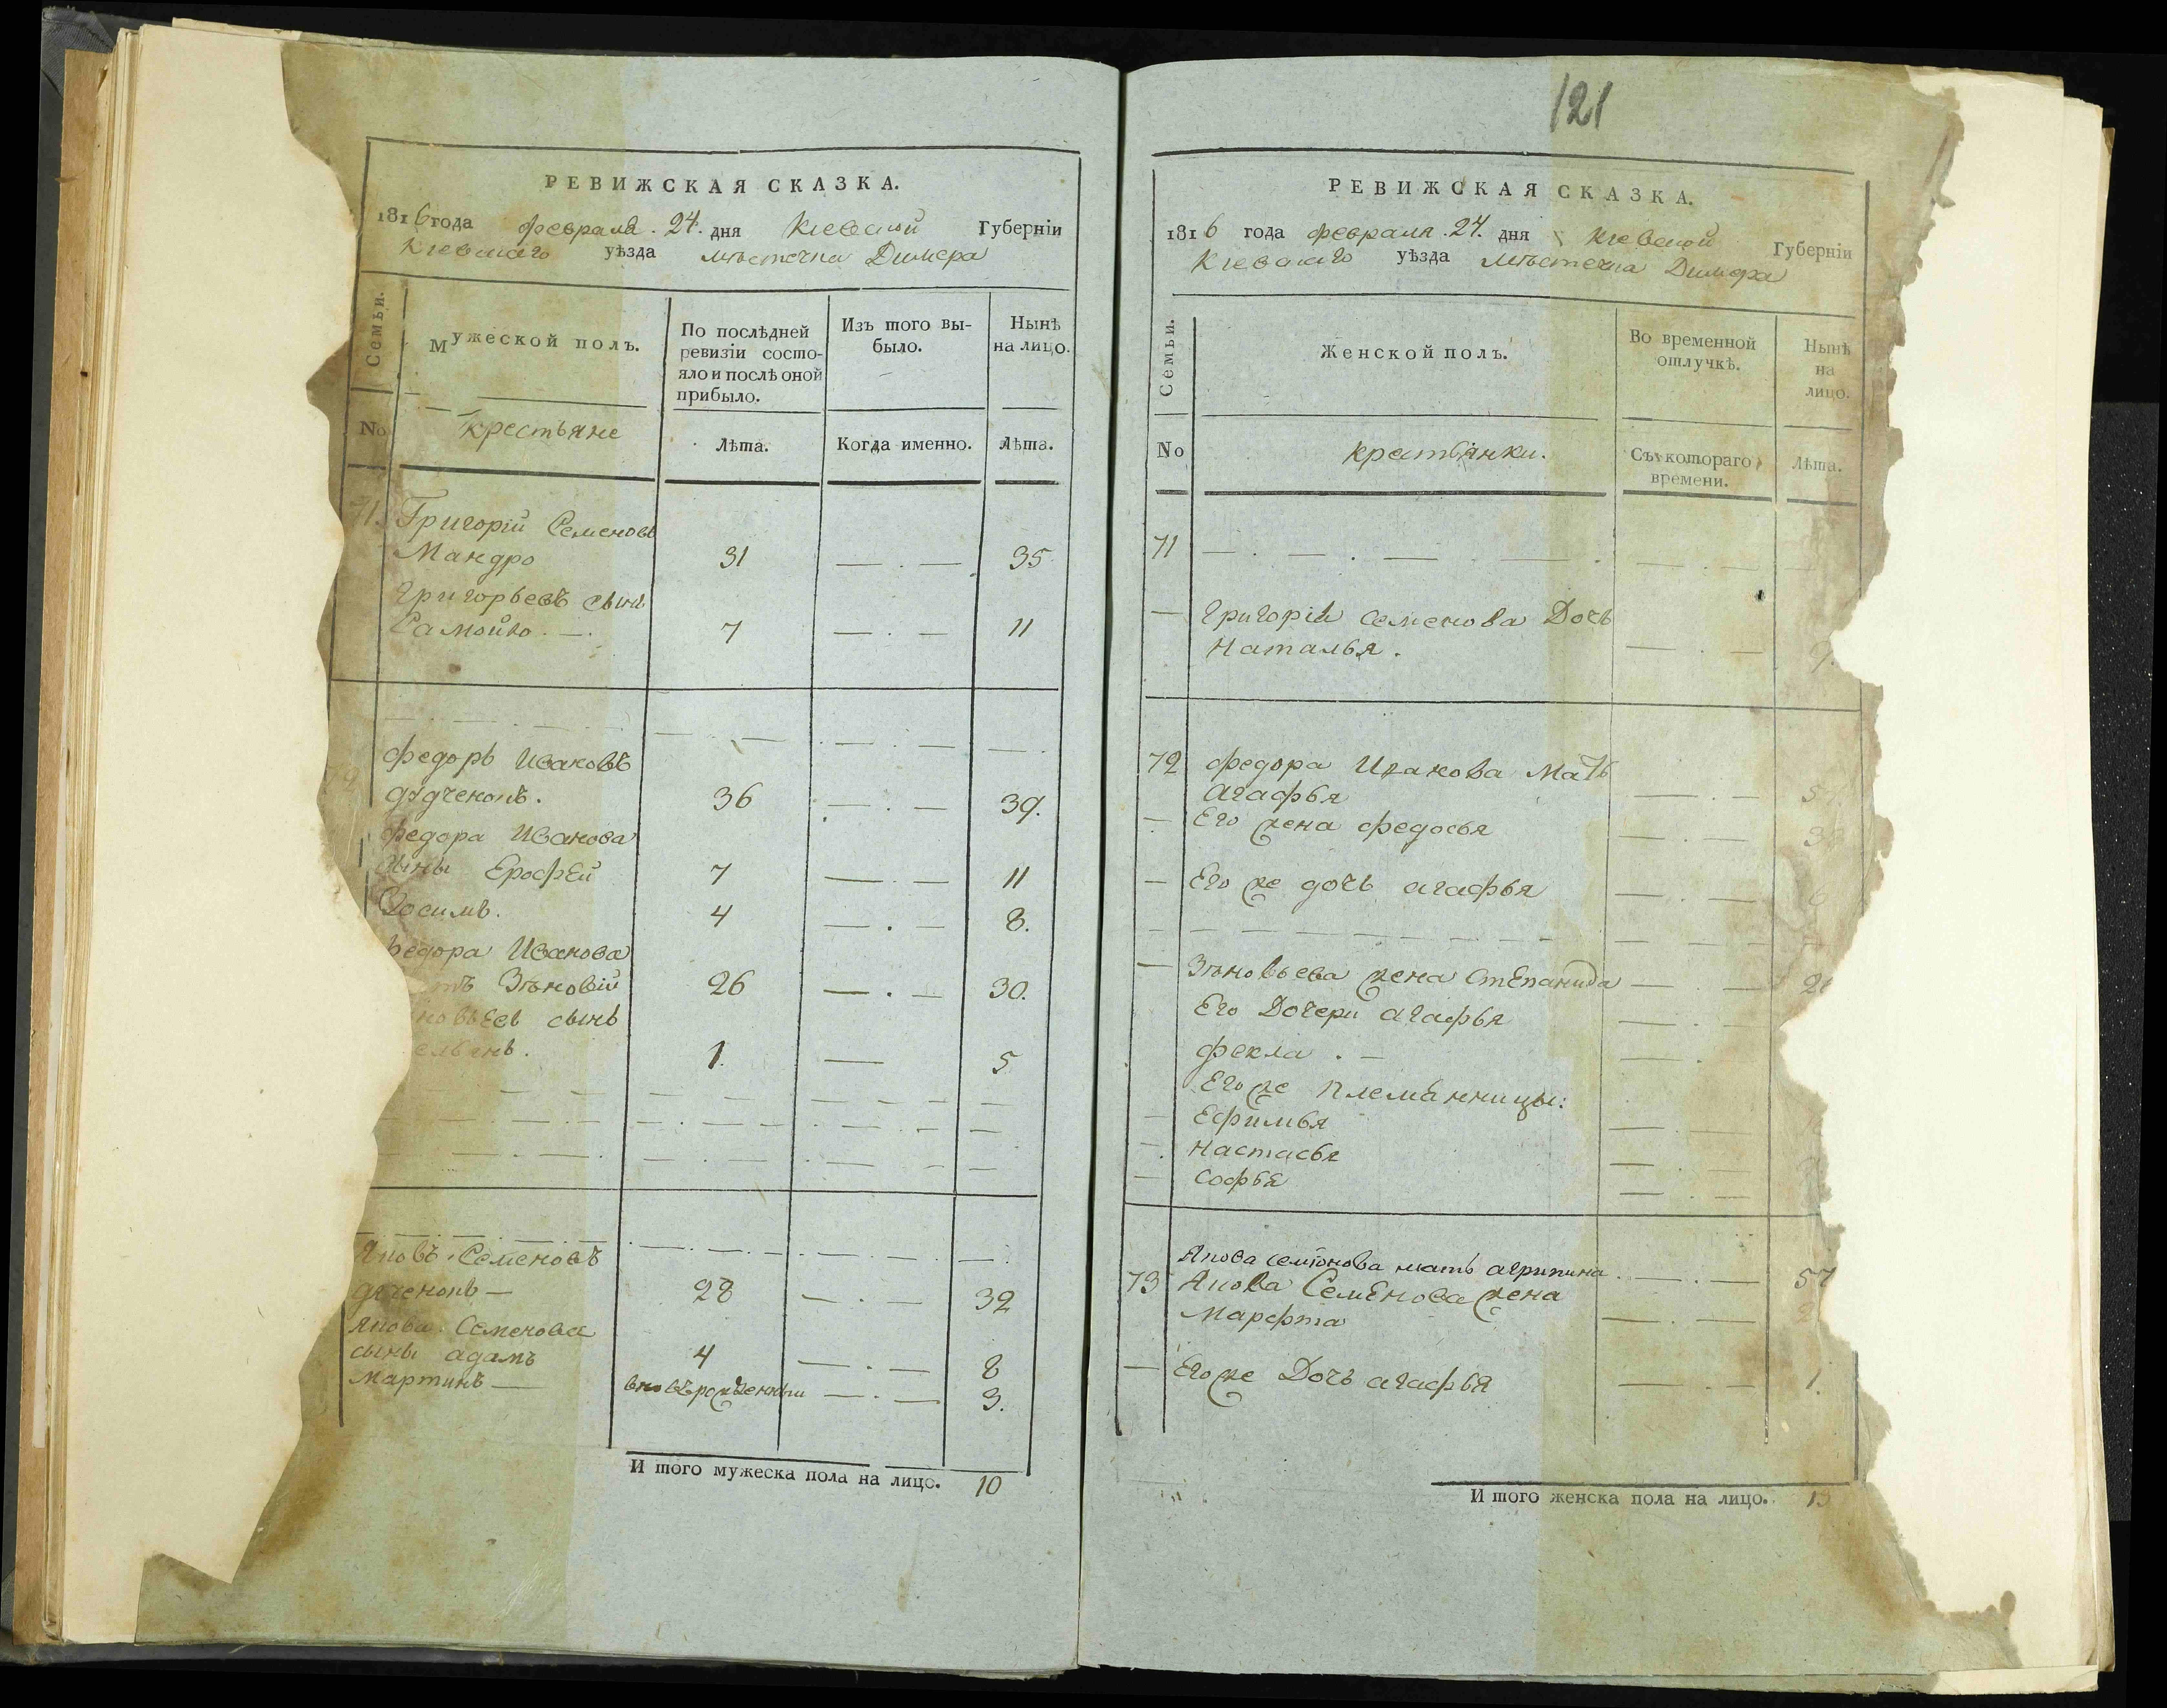 РЕВИЖСКАЯ СКАЗКА.
1816 года февраля. 24. дня Кіевской Губерніи
Кіевскаго уѣзда мѣстечка Димера
Семьи.
Мужеской полъ.
По послѣдней
ревизіи состо-
яло и послѣ оной
прибыло.
Изъ того вы-
было.
Нынѣ
на лицо.
No
крестьяне
Лѣта.
Когда именно.
Лѣта.
71. Григорій Семеновъ
Мандро 31 — . — 35
Григорьевъ сынъ
Самойло . — . 7 — . — 11
Федоръ Ивановъ
дудченокъ. 36 — . — 39.
Федора Иванова
сыны Ерофей 7 — . — 11
Зосимъ. 4 — . — 8.
Федора Иванова
Зѣновій 26 — . — 30.
сынъ
1. — 5
Яковъ Семеновъ
28 — . — 32
Якова Семенова
сыны адамъ 4 — . — 8
Мартинъ — вновърожденныи — . — 3.
И того мужеска пола на лицо. 10
121
РЕВИЖСКАЯ СКАЗКА.
1816 года февраля. 24. дня Кіевской Губерніи
Кіевскаго уѣзда мѣстечка Димера
Семьи.
Женской полъ.
Во временной
отлучкѣ.
Нынѣ
на
лицо.
No
крестьянки.
Съ котораго
времени.
Лѣта.
71 — . — . — . — .
— Григорія Семенова Дочь
Наталья. — . — 9.
72 Федора Иванова Мать
Агафья — . —
— Его жена федосья — . —
— Его же дочь агафья — . —
— Зѣновьева жена стЕпанида — . —
Его Дочери агафья — . —
фекла . — — .
Его же племянницы:
— Ефимья — . —
— Настасья — . —
— Софья — . —
Якова семіонова мать агрипина . — . — 57
73 Якова СемЕнова жена
Марфта — . —
— Его же Дочь агафья — . — 1.
И того женска пола на лицо. 13